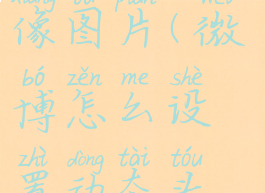 像图片(微
bó zěn me shè
博怎么设
zhì dòng tài tóu
置动态头